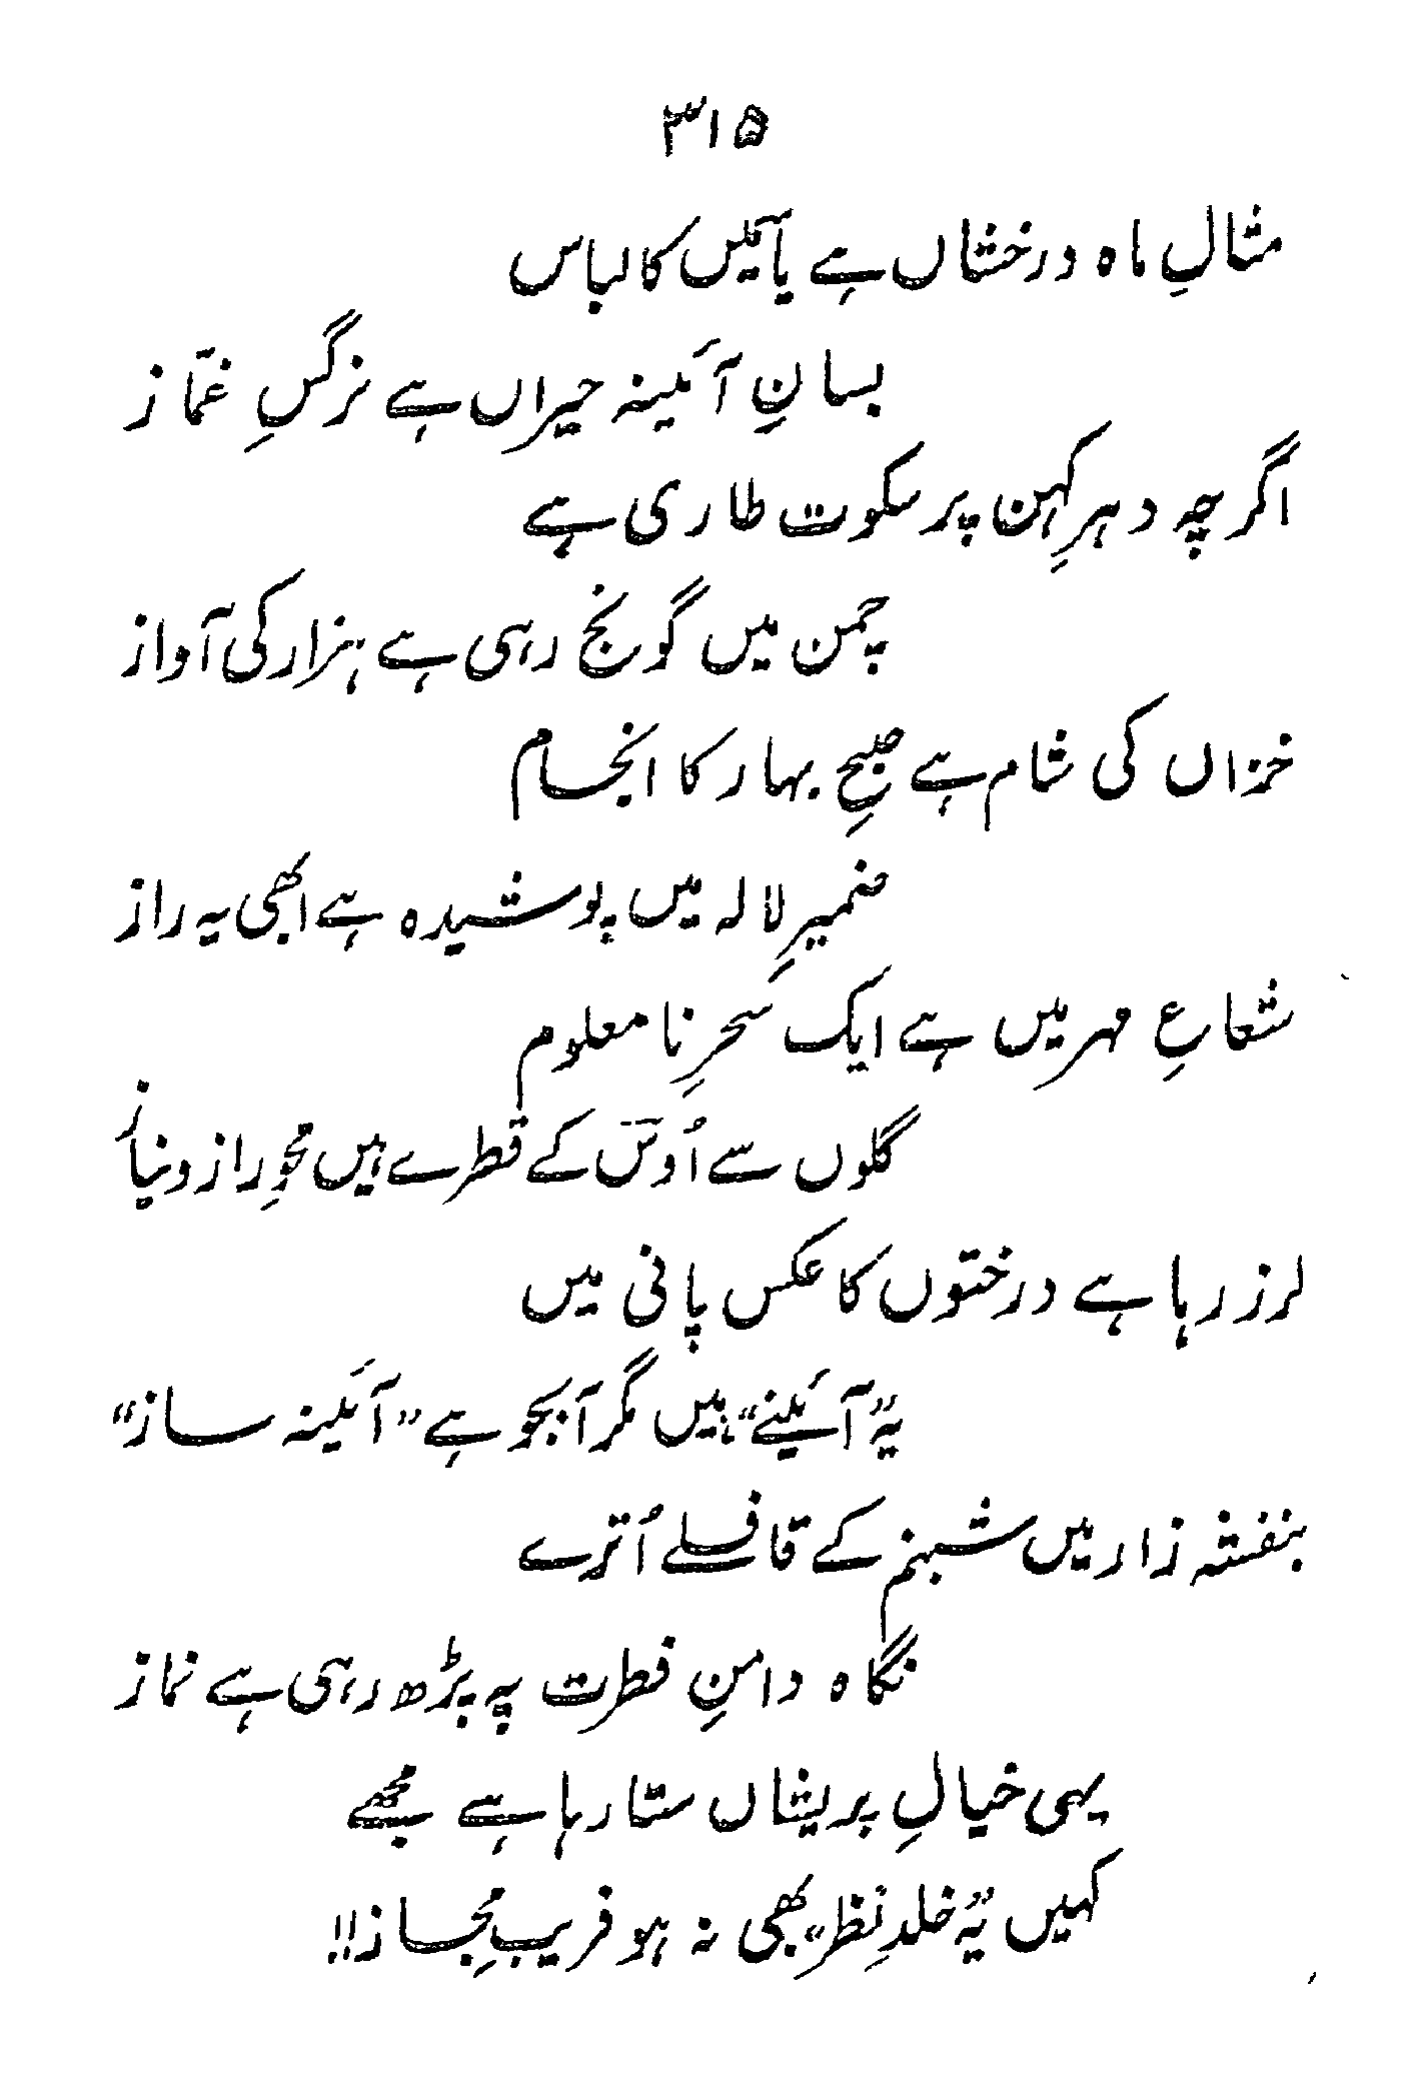 ۳۱۵
مثالِ ماہ درخشاں ہے یاسمیں کا لباس
بسانِ آئینہ حیراں ہے نرگسِ غمّاز
اگرچہ دہرِ کہن پر سکوت طاری ہے
چمن میں گونج رہی ہے ہزار کی آواز
خزاں کی شام ہے صبحِ بہار کا انجام
ضمیرِ لالہ میں پوشیدہ ہے ابھی یہ راز
شعاعِ مہر میں ہے ایک سحرِ نا معلوم
گلوں سے اُوس کے قطرے ہیں محوِ راز و نیاز
لرز رہا ہے درختوں کا عکس پانی میں
یہ "آئینے" ہیں مگر آبجو ہے "آئینہ ساز"
بنفشہ زار میں شبنم کے قافلے اُترے
نگاہ دامنِ فطرت پہ پڑھ رہی ہے نماز
یہی خیالِ پریشاں ستا رہا ہے مجھے
کہیں یہ "خلدِ نظر" بھی نہ ہو فریبِ مجاز!!